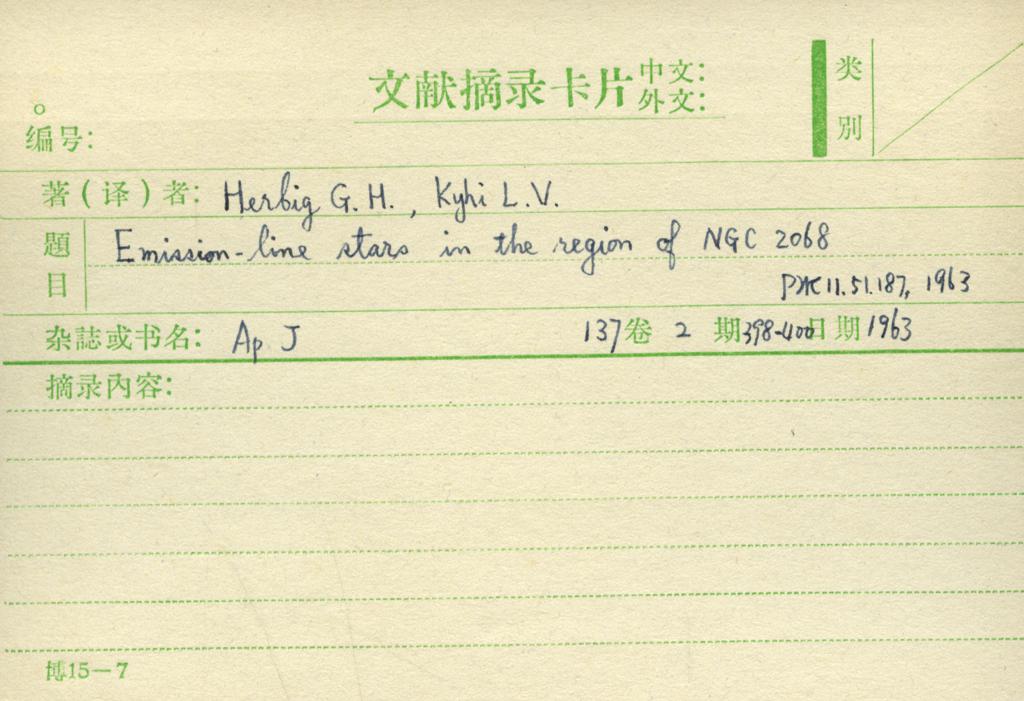 文献摘录卡片 中文:
外文:
类
别
编号:
著(译)者: Herbig G.H., Kyhi L.V.
题 Emission-line stars in the region of NGC 2068
目 РЖ 11.51.187, 1963
杂誌或书名: Ap J 137卷 2 期398-400日期1963
摘录内容:
博15—7